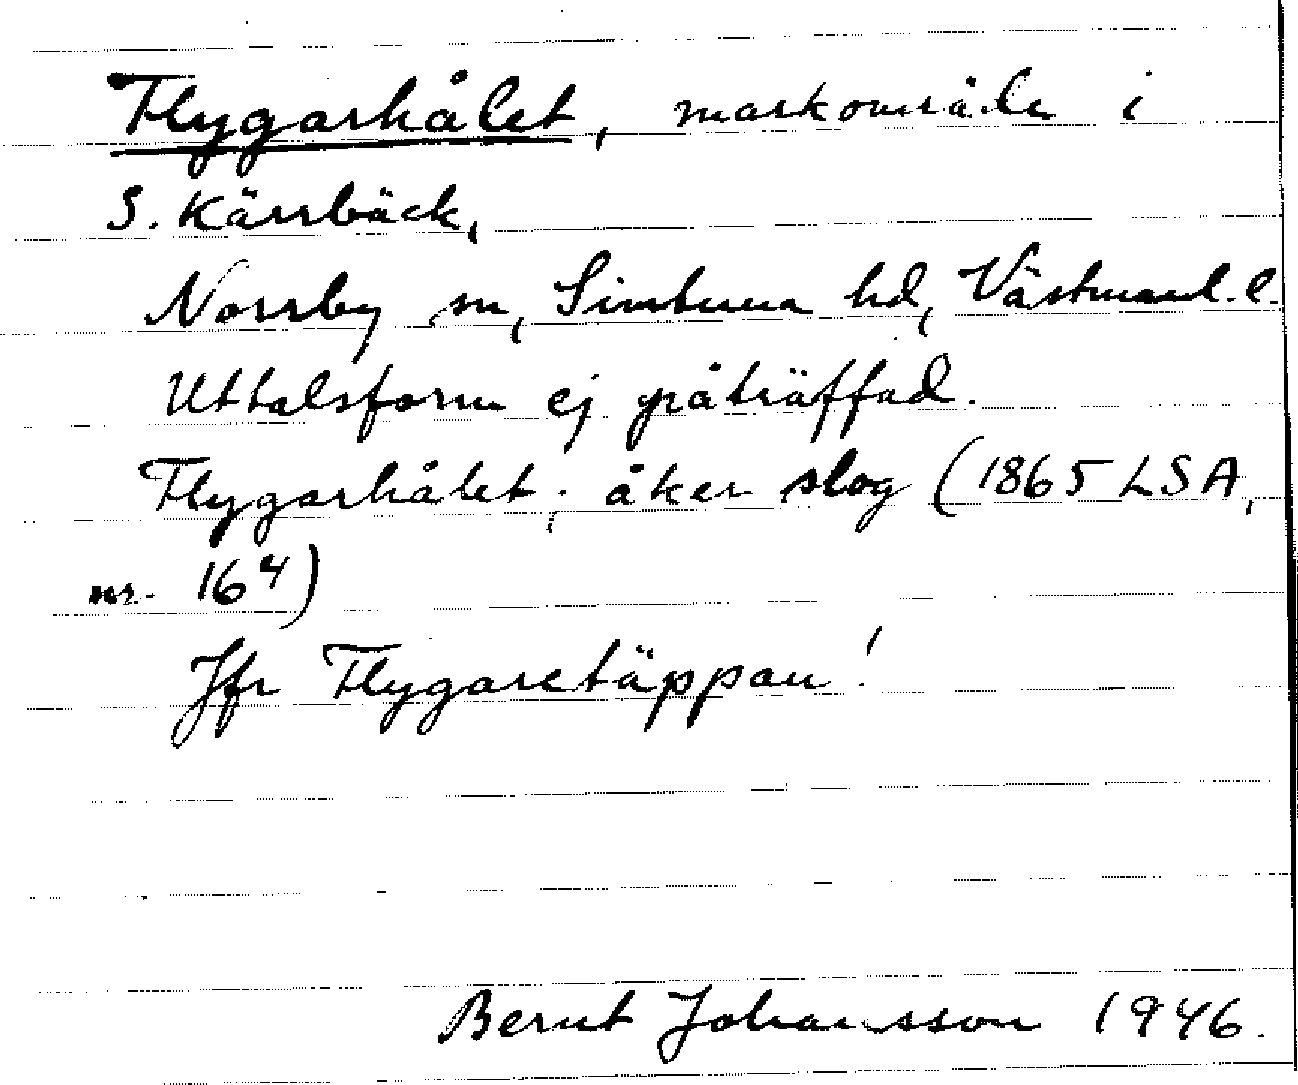 Flygarhålet, markområde i
S. Kärrbäck,
Norrby sn, Simtuna hd, Västmanl. l.
Uttalsform ej påträffad.
Flygarhålet; åker slog (1865 LSA,
nr. 164)
Jfr Flygaretäppan!
Bernt Johansson 1946.